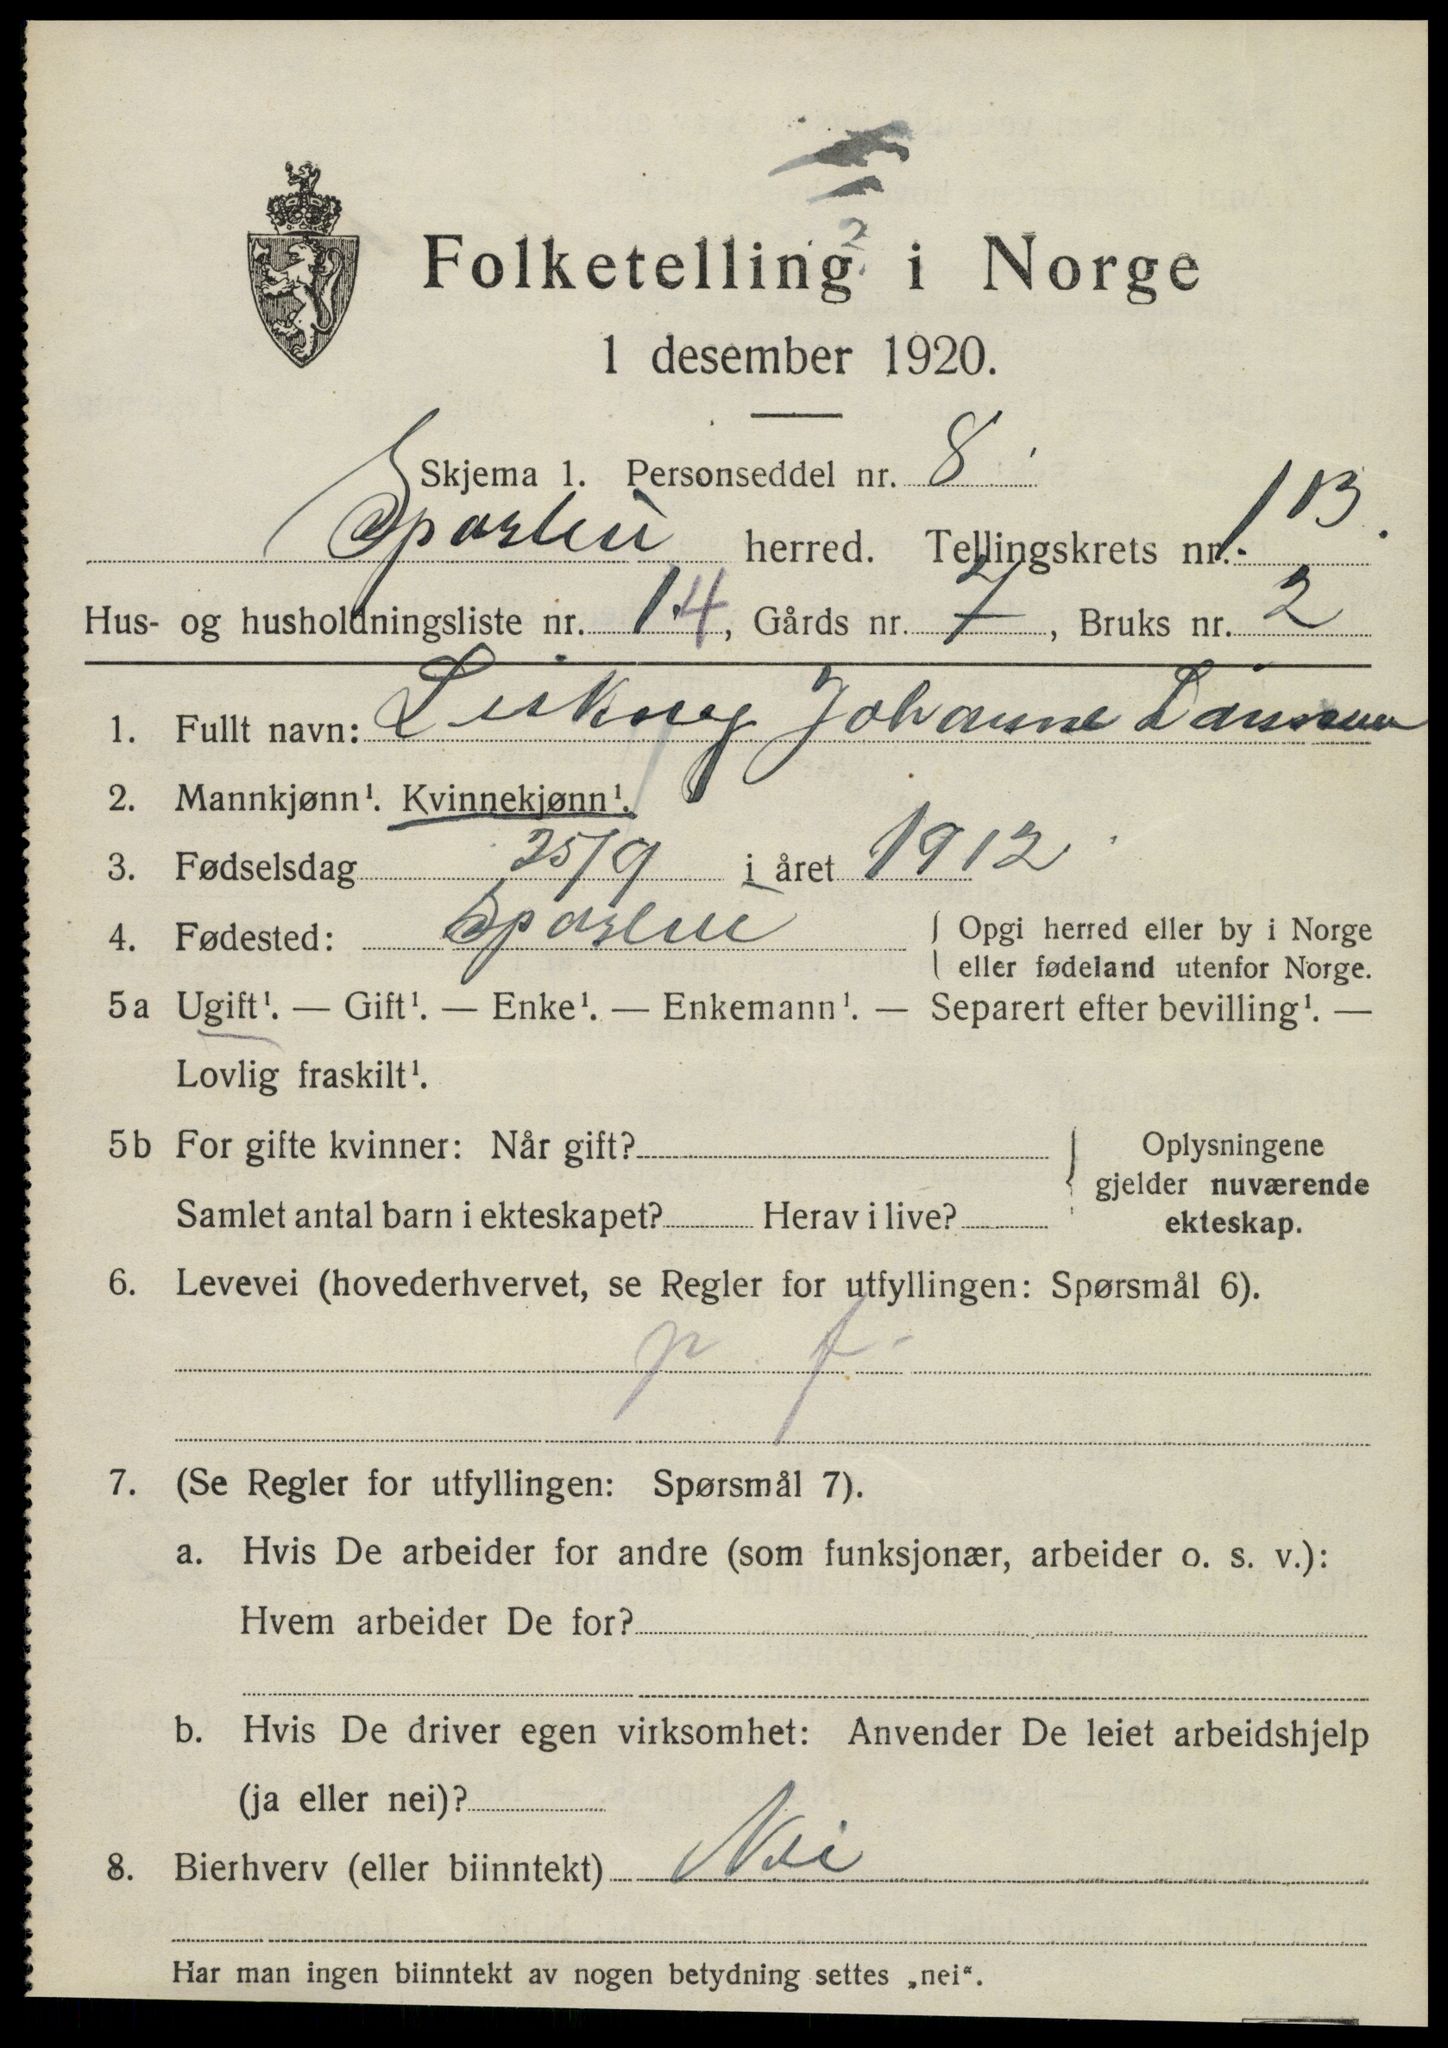 Folketelling i Norge
1 desember 1920.
Skjema 1. Personseddel nr. 8
herred. Tellingskrets nr. 1 B.
Hus- og husholdningsliste nr. 14, Gårds nr. 7, Bruks nr. 2
1. Fullt navn: Johanne
2. Mannkjønn¹. Kvinnekjønn¹.
3. Fødselsdag 25/9 i året 1912
4. Fødested: { Opgi herred eller by i Norge
eller fødeland utenfor Norge.
5a Ugift¹. — Gift¹. — Enke¹. — Enkemann¹. — Separert efter bevilling¹. —
Lovlig fraskilt¹.
5b For gifte kvinner: Når gift? } Oplysningene
gjelder nuværende
Samlet antal barn i ekteskapet? Herav i live? ekteskap.
6. Levevei (hovederhvervet, se Regler for utfyllingen: Spørsmål 6).
p. f.
7. (Se Regler for utfyllingen: Spørsmål 7).
a. Hvis De arbeider for andre (som funksjonær, arbeider o. s. v.):
Hvem arbeider De for?
b. Hvis De driver egen virksomhet: Anvender De leiet arbeidshjelp
(ja eller nei)?
8. Bierhverv (eller biinntekt) Nei
Har man ingen biinntekt av nogen betydning settes „nei“.